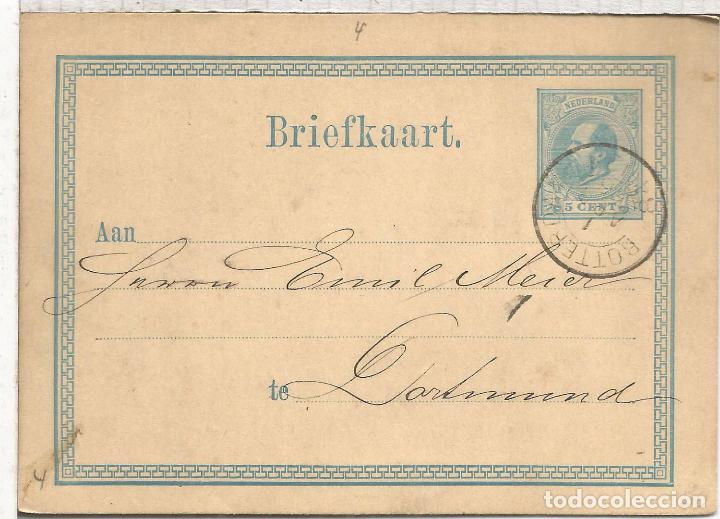 4
NEDERLAND
Briefkaart.
5 CENT
ROTTERDAM
Aan
Herrn Emil Meier
te Dortmund
4
todocoleccion
todocoleccion.net